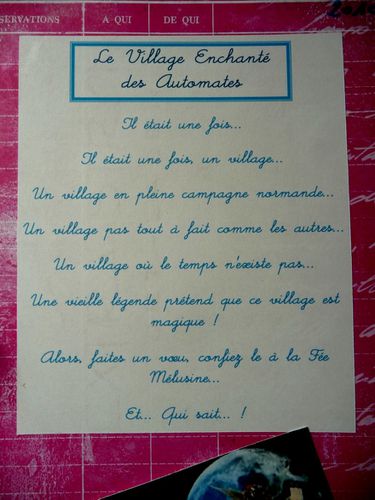 SERVATIONS A QUI DE QUI
Le Village Enchanté
des Automates
Il était une fois...
Il était une fois, un village...
Un village en pleine campagne normande...
Un village pas tout à fait comme les autres...
Un village où le temps n'existe pas...
Une vieille légende prétend que ce village est
magique !
Alors, faites un vœu, confiez le à la Fée
Mélusine...
Et... Qui sait... !